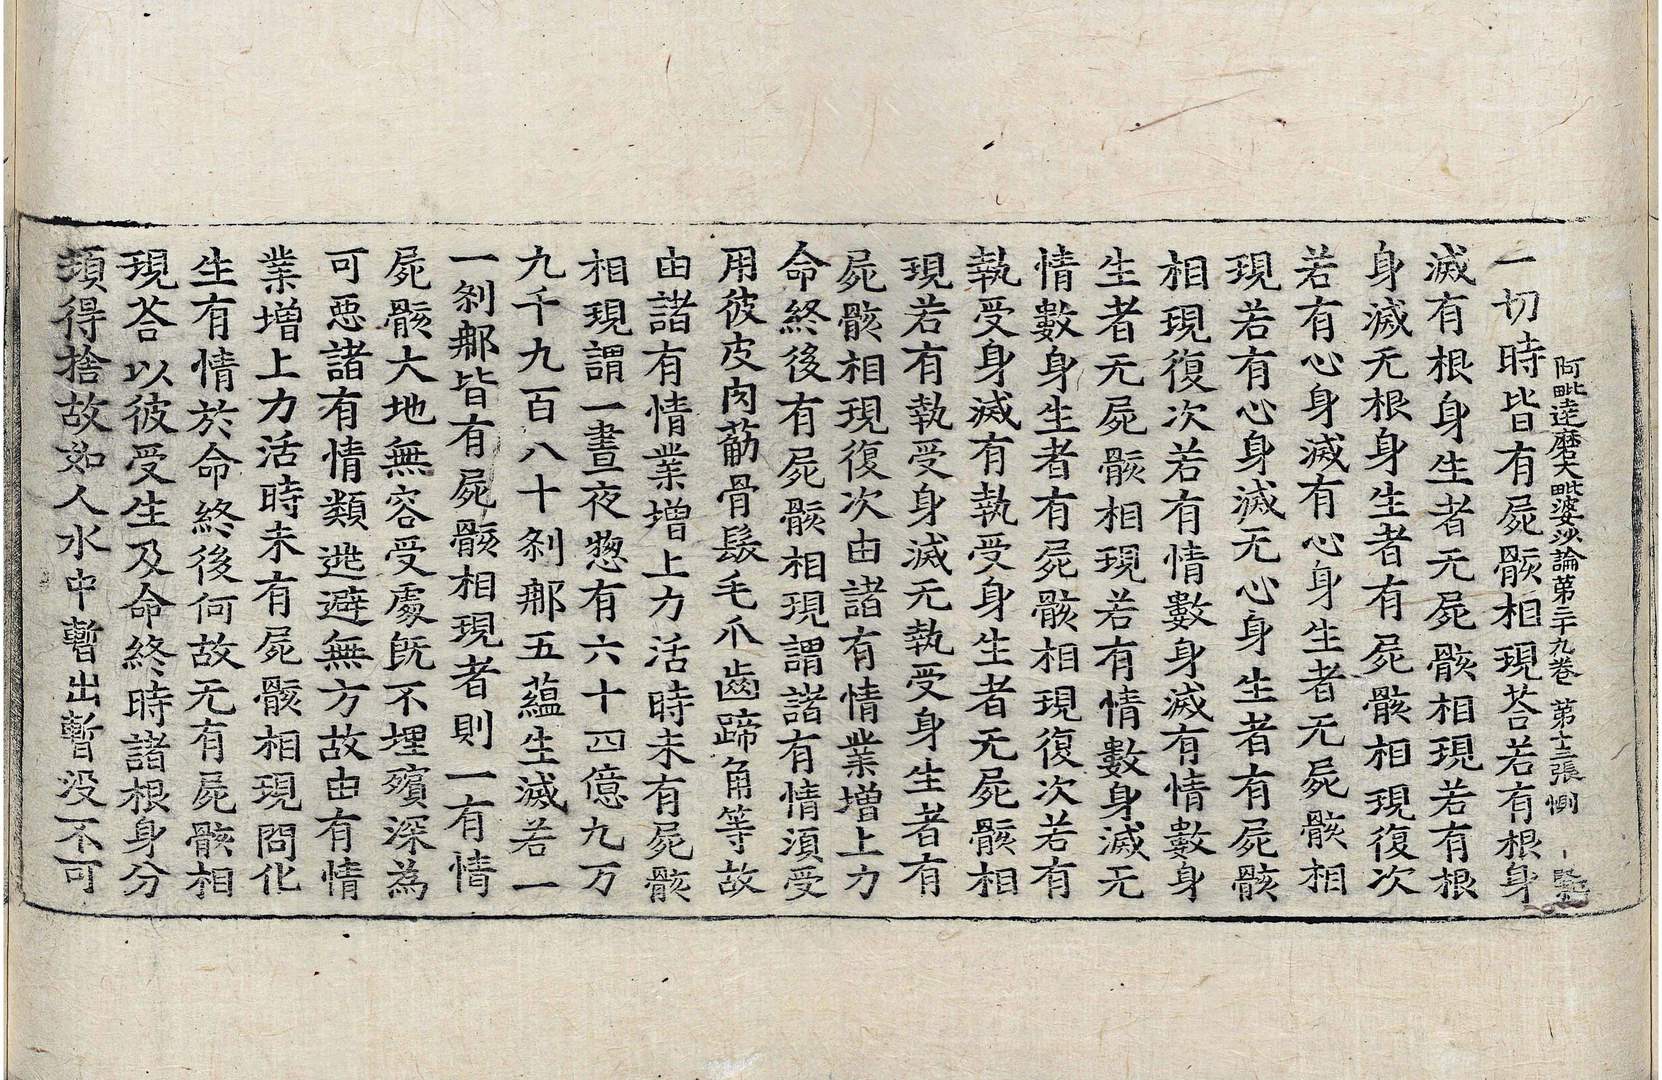 阿毗達磨大毗婆沙論第三十九卷 第十三張 惻
一切時皆有屍骸相現荅若有根身
滅有根身生者无屍骸相現若有根
身滅无根身生者有屍骸相現復次
若有心身滅有心身生者无屍骸相
現若有心身滅无心身生者有屍骸
相現復次若有情數身滅有情數身
生者无屍骸相現若有情數身滅无
情數身生者有屍骸相現復次若有
執受身滅有執受身生者无屍骸相
現若有執受身滅无執受身生者有
屍骸相現復次由諸有情業增上力
命終後有屍骸相現謂諸有情須受
用彼皮肉葪骨髮毛爪齒蹄角等故
由諸有情業增上力活時未有屍骸
相現謂一晝夜惣有六十四億九万
九千九百八十刹郍五蘊生滅若一
一刹郍皆有屍骸相現者則一有情
屍骸大地無容受處旣不埋殯深為
可惡諸有情類逃避無方故由有情
業增上力活時未有屍骸相現問化
生有情於命終後何故无有屍骸相
現荅以彼受生及命終時諸根身分
頓得捨故如人水中暫出暫没不可